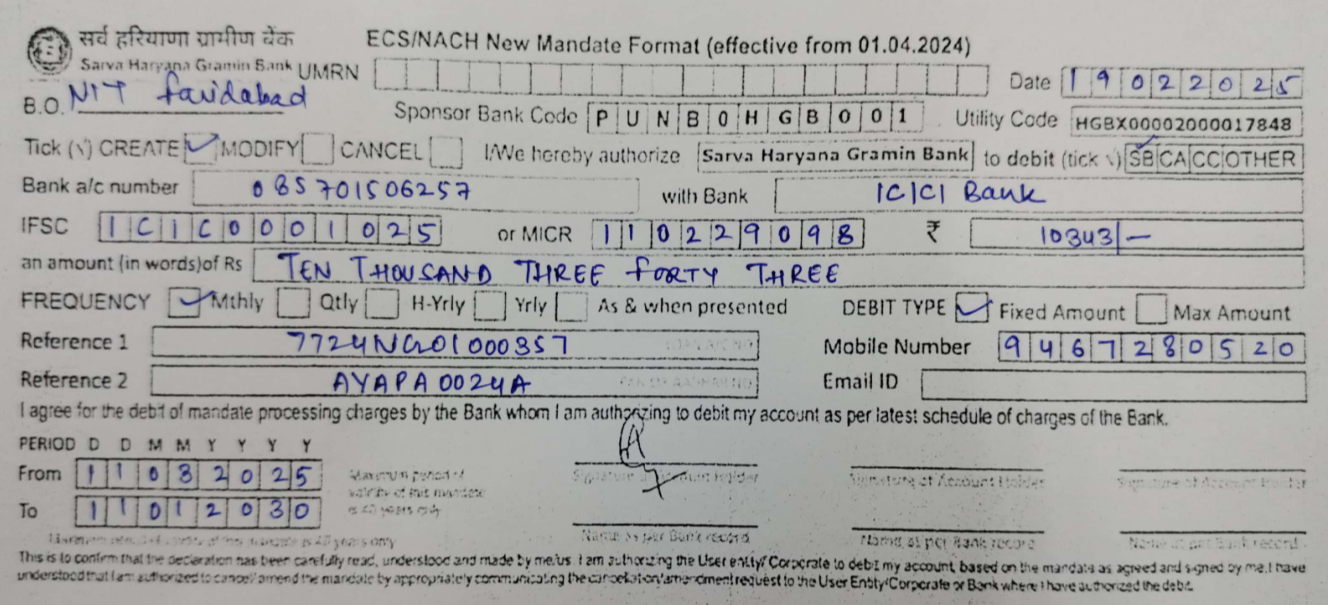 सर्व हरियाणा ग्रामीण बैंक ECS/NACH New Mandate Format (effective from 01.04.2024)
Sarva Haryana Gramin Bank UMRN Date 19022025
B.O. NIT faridabad Sponsor Bank Code PUNB0HGB001 Utility Code HGBX00002000017848
Tick (√) CREATE MODIFY CANCEL I/We hereby authorize Sarva Haryana Gramin Bank to debit (tick √) SB CA CC OTHER
Bank a/c number 085701506257 with Bank ICICI Bank
IFSC ICIC0001025 or MICR 110229098 ₹ 10343/-
an amount (in words)of Rs TEN THOUSAND THREE FORTY THREE
FREQUENCY Mthly Qtly H-Yrly Yrly As & when presented DEBIT TYPE Fixed Amount Max Amount
Reference 1 7724NG01000357 LOAN A/C NO Mobile Number 9467280520
Reference 2 AYAPA0024A PAN OR AADHAAR NO Email ID
I agree for the debit of mandate processing charges by the Bank whom I am authorizing to debit my account as per latest schedule of charges of the Bank.
PERIOD D D M M Y Y Y Y
From 11032025 Maximum period of validity of this mandate is 40 years only Signature of Account Holder Signature of Account Holder Signature of Account Holder
To 11012030
Maximum period of validity of this mandate is 40 years only Name as per Bank record Name as per Bank record Name as per Bank record
This is to confirm that the declaration has been carefully read, understood and made by me/us. I am authorizing the User entity/ Corporate to debit my account, based on the mandate as agreed and signed by me. I have
understood that I am authorized to cancel/ amend the mandate by appropriately communicating the cancellation/amendment request to the User Entity/Corporate or Bank where I have authorized the debit.